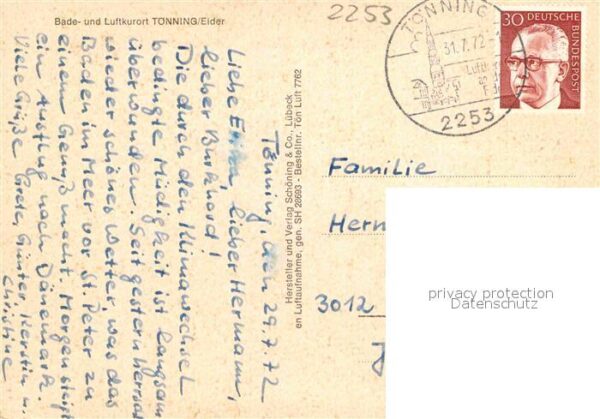 Bade- und Luftkurort TÖNNING/Eider
2253
TÖNNING
31.7.72
2253
30 DEUTSCHE
BUNDESPOST
Tönning, den 29.7.72
Liebe Erika, lieber Hermann,
lieber Burkhard!
Die durch den Klimawechsel
bedingte Müdigkeit ist langsam
überwunden. Seit gestern herrscht
wieder schönes Wetter, was das
Baden im Meer vor St. Peter zu
einem Genuß macht. Morgen steigt
ein Ausflug nach Dänemark.
Viele Grüße Grete, Günter, Kerstin u.
Christine
Hersteller und Verlag Schöning & Co., Lübeck
en Luftaufnahme, gen. SH 28693 - Bestellnr. Tön Luft 7762
Familie
Herm
3012
privacy protection
Datenschutz